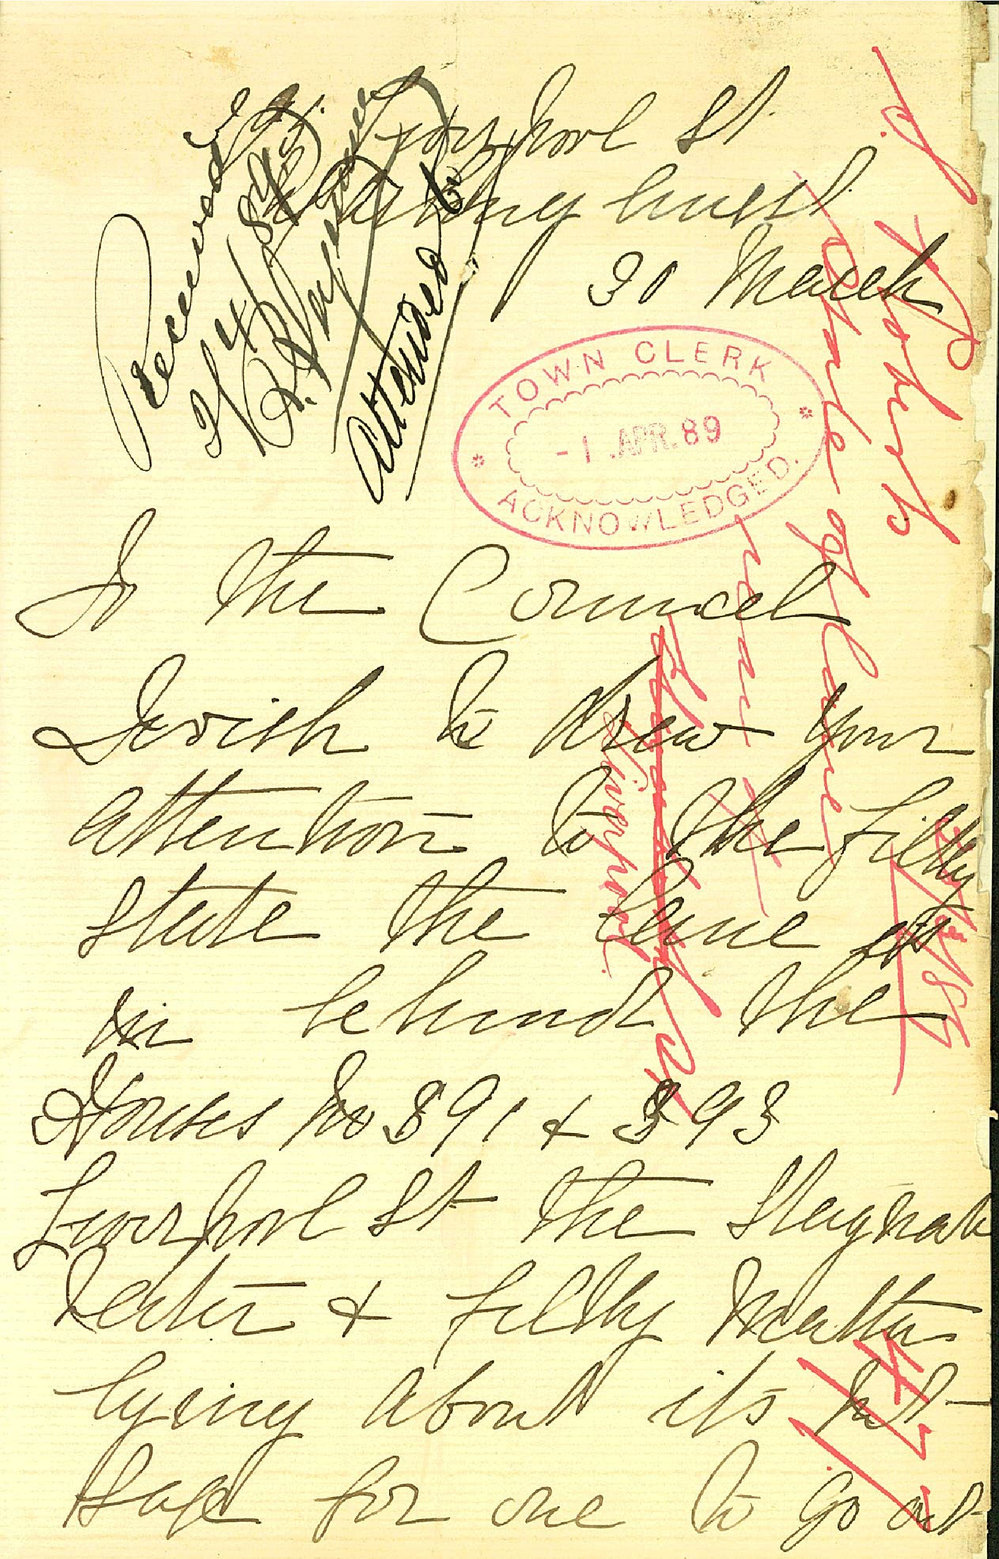 Liverpool St
Darlinghurst
30 March
Received
2/4/89
Attended to
TOWN CLERK
- 1 . APR. 89
ACKNOWLEDGED.
To the Council
I wish to draw your
attention to the filthy
state the lane is
in behind the
Houses No 391 & 393
Liverpool St the Stagnate
Water & filthy Matter
lying about its not
safe for one to go out
P. Roberts
State of lane
near
Liverpool